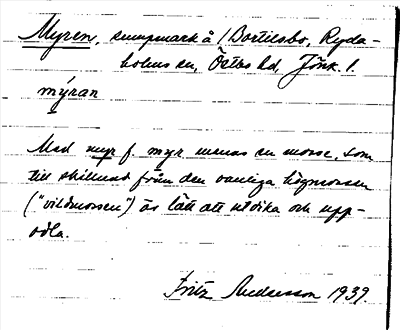 Myren, sumpmark å /Bortilsbo, Ryda-
holms sn, Östbo hd, Jönk. l.
mýran
Med myr f. myr menas en mosse, som
till skillnad från den vanliga högmossen
("vildmossen") är lätt att utdika och upp-
odla.
Fritz 1939.